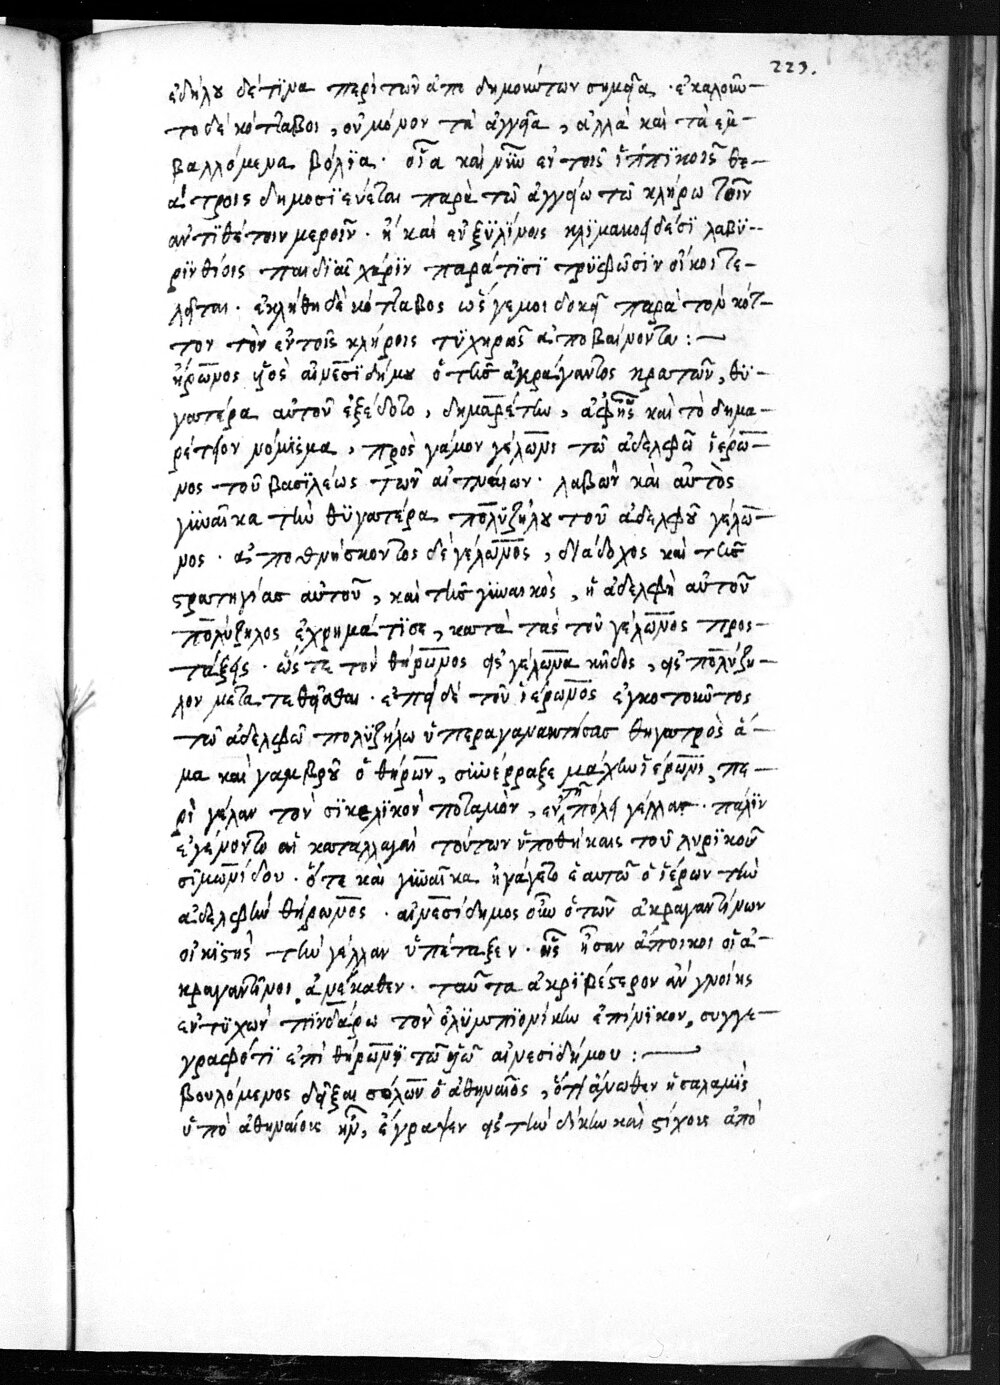 223.
ἐδήλου δέ τινα περὶ τῶν ἀποδημούντων σημεῖα. ἐκαλοῦν-
το δὲ κότταβοι, οὐ μόνον τὰ ἀγγεῖα, ἀλλὰ καὶ τὰ ἐμ-
βαλλόμενα βόλϊα. οἷα καὶ νῦν ἐν τοῖς ἱππϊκοῖς θε-
άτροις δημοσϊεύεται παρὰ τῶ ἀγγείω τῶ κλήρω τοῖν
ἀντϊθέτοιν μεροῖν. ἢ καὶ ἐν ξϋλΐνοις κλϊμακοειδέσϊ λαβϋ-
ρϊνθίοις παιδϊᾶς χάρϊν παρά τϊσϊ τρϋφῶσϊν οἴκοι τε-
λεῖται. ἐκλήθη δὲ κότταβος ὡς ἔγεμοι δοκεῖ παρὰ τὸν κότ-
τον τὸν ἐν τοῖς κλήροις τϋχηρῶς ἀποβαίνοντα:
θήρωνος υἱὸς αἰνεσϊδήμου ὁ τῆς ἀκράγαντος κρατῶν, θϋ-
γατέρα αὐτοῦ ἐξέδοτο, δημαρέτην, ἀφ' ἧς καὶ τὸ δημα-
ρέτειον νόμϊσμα, πρὸς γάμον γέλωνι τῶ ἀδελφῶ ἱέρω-
νος τοῦ βασϊλέως τῶν αἰτναίων. λαβὼν καὶ αὐτὸς
γυναῖκα τὴν θϋγατέρα πολϋζήλου τοῦ ἀδελφοῦ γέλω-
νος. ἀποθνήσκοντος δὲ γέλωνος, διάδοχος καὶ τῆς
στρατηγίας αὐτοῦ, καὶ τῆς γυναικὸς, ἡ ἀδελφὴ αὐτοῦ
πολύζηλος ἐχρημάτϊσε, κατὰ τὰς τοῦ γέλωνος προς-
τάξεις. ὥστε τὸν θήρωνος εἰς γέλωνα κῆδος, εἰς πολύζη-
λον μετατεθεῖσθαι. ἐπεὶ δὲ τοῦ ἱέρωνος ἐγκοτοῦντος
τῶ ἀδελφῶ πολϋζήλω ὑπεραγανακτήσας θηγατρὸς ἅ-
μα καὶ γαμβροῦ ὁ θήρων, συνέρραξε μάχην ἱέρωνι, πε-
ρὶ γέλαν τὸν σϊκελϊκὸν ποταμὸν, ἐν τῆ πόλει γέλλας. πάλϊν
ἐγένοντο αἱ καταλλαγαὶ τούτων ὑποθήκαις τοῦ λυρϊκοῦ
σϊμωνίδου. ὅτε καὶ γυναῖκα ἠγάγετο ἑαυτῶ ὁ ἱέρων τὴν
ἀδελφὴν θήρωνος. αἰνεσίδημος οὖν ὁ τῶν ἀκραγαντίνων
οἰκϊστὴς τὴν γέλλαν ὑπέταξεν. ἧς ἦσαν ἄποικοι οἱ ἀ-
κραγαντῖνοι ἀνέκαθεν. ταῦτα ἀκρϊβέστερον ἂν γνοίης
ἐντϋχὼν πϊνδάρω τὸν ὀλϋμπϊονίκην ἐπίνϊκον, συγγε-
γραφότϊ ἐπὶ θήρωνϊ τῶ υἱῶ αἰνεσϊδήμου:
βουλόμενος δεῖξαι σόλων ὁ ἀθηναῖος, ὅτι ἄνωθεν ἡ σαλαμὶς
ὑπὸ ἀθηναίοις ἦν, ἔγραψεν εἰς τὴν δίκην καὶ στίχους ἀπὸ